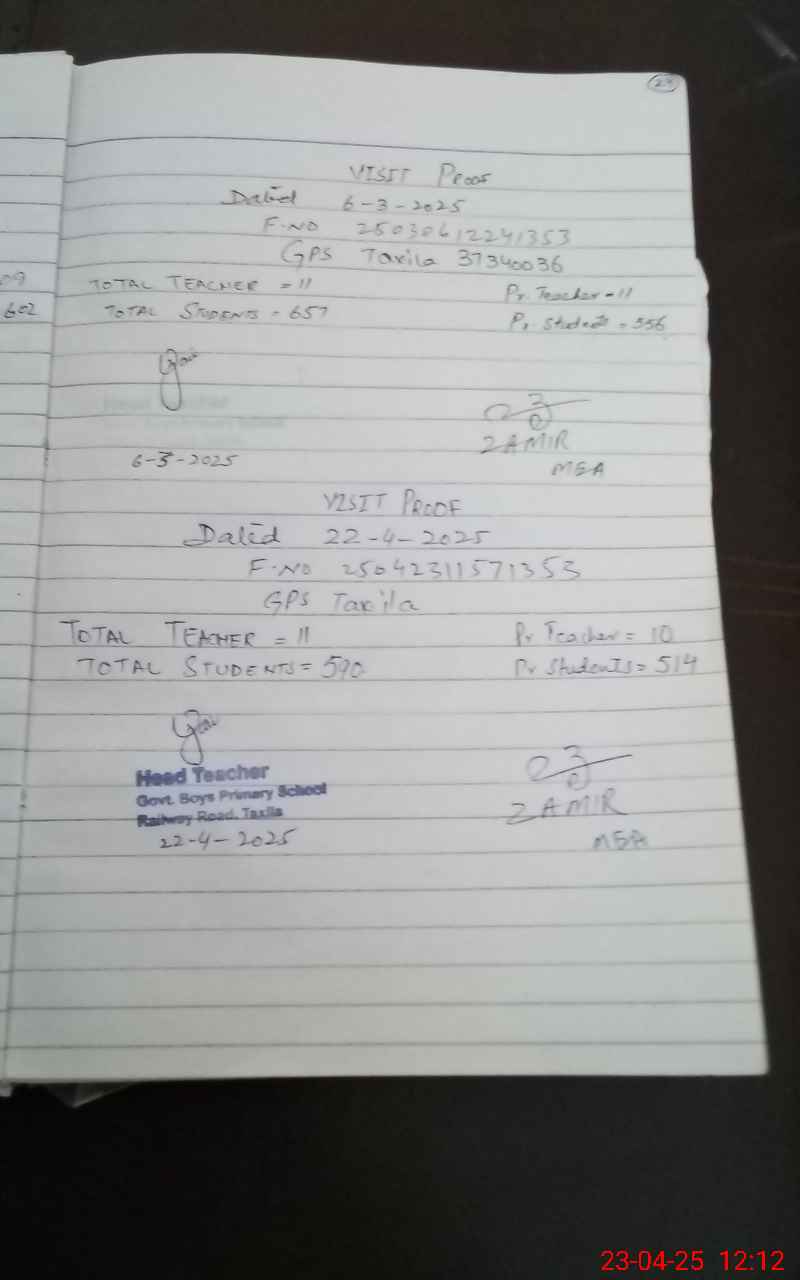 24
VISIT Proof
Dated 6-3-2025
F.NO 25030612241353
GPS Taxila 37340036
TOTAL TEACHER = 11 Pr. Teacher = 11
TOTAL STUDENTS = 657 Pr. Students = 556
09
602
6-3-2025
ZAMIR
MEA
VISIT PROOF
Dated 22-4-2025
F.NO 25042311571353
GPS Taxila
TOTAL TEACHER = 11 Pr Teacher = 10
TOTAL STUDENTS = 590 Pr Students = 514
Head Teacher
Govt. Boys Primary School
Railway Road, Taxila
22-4-2025
ZAMIR
MEA
23-04-25 12:12